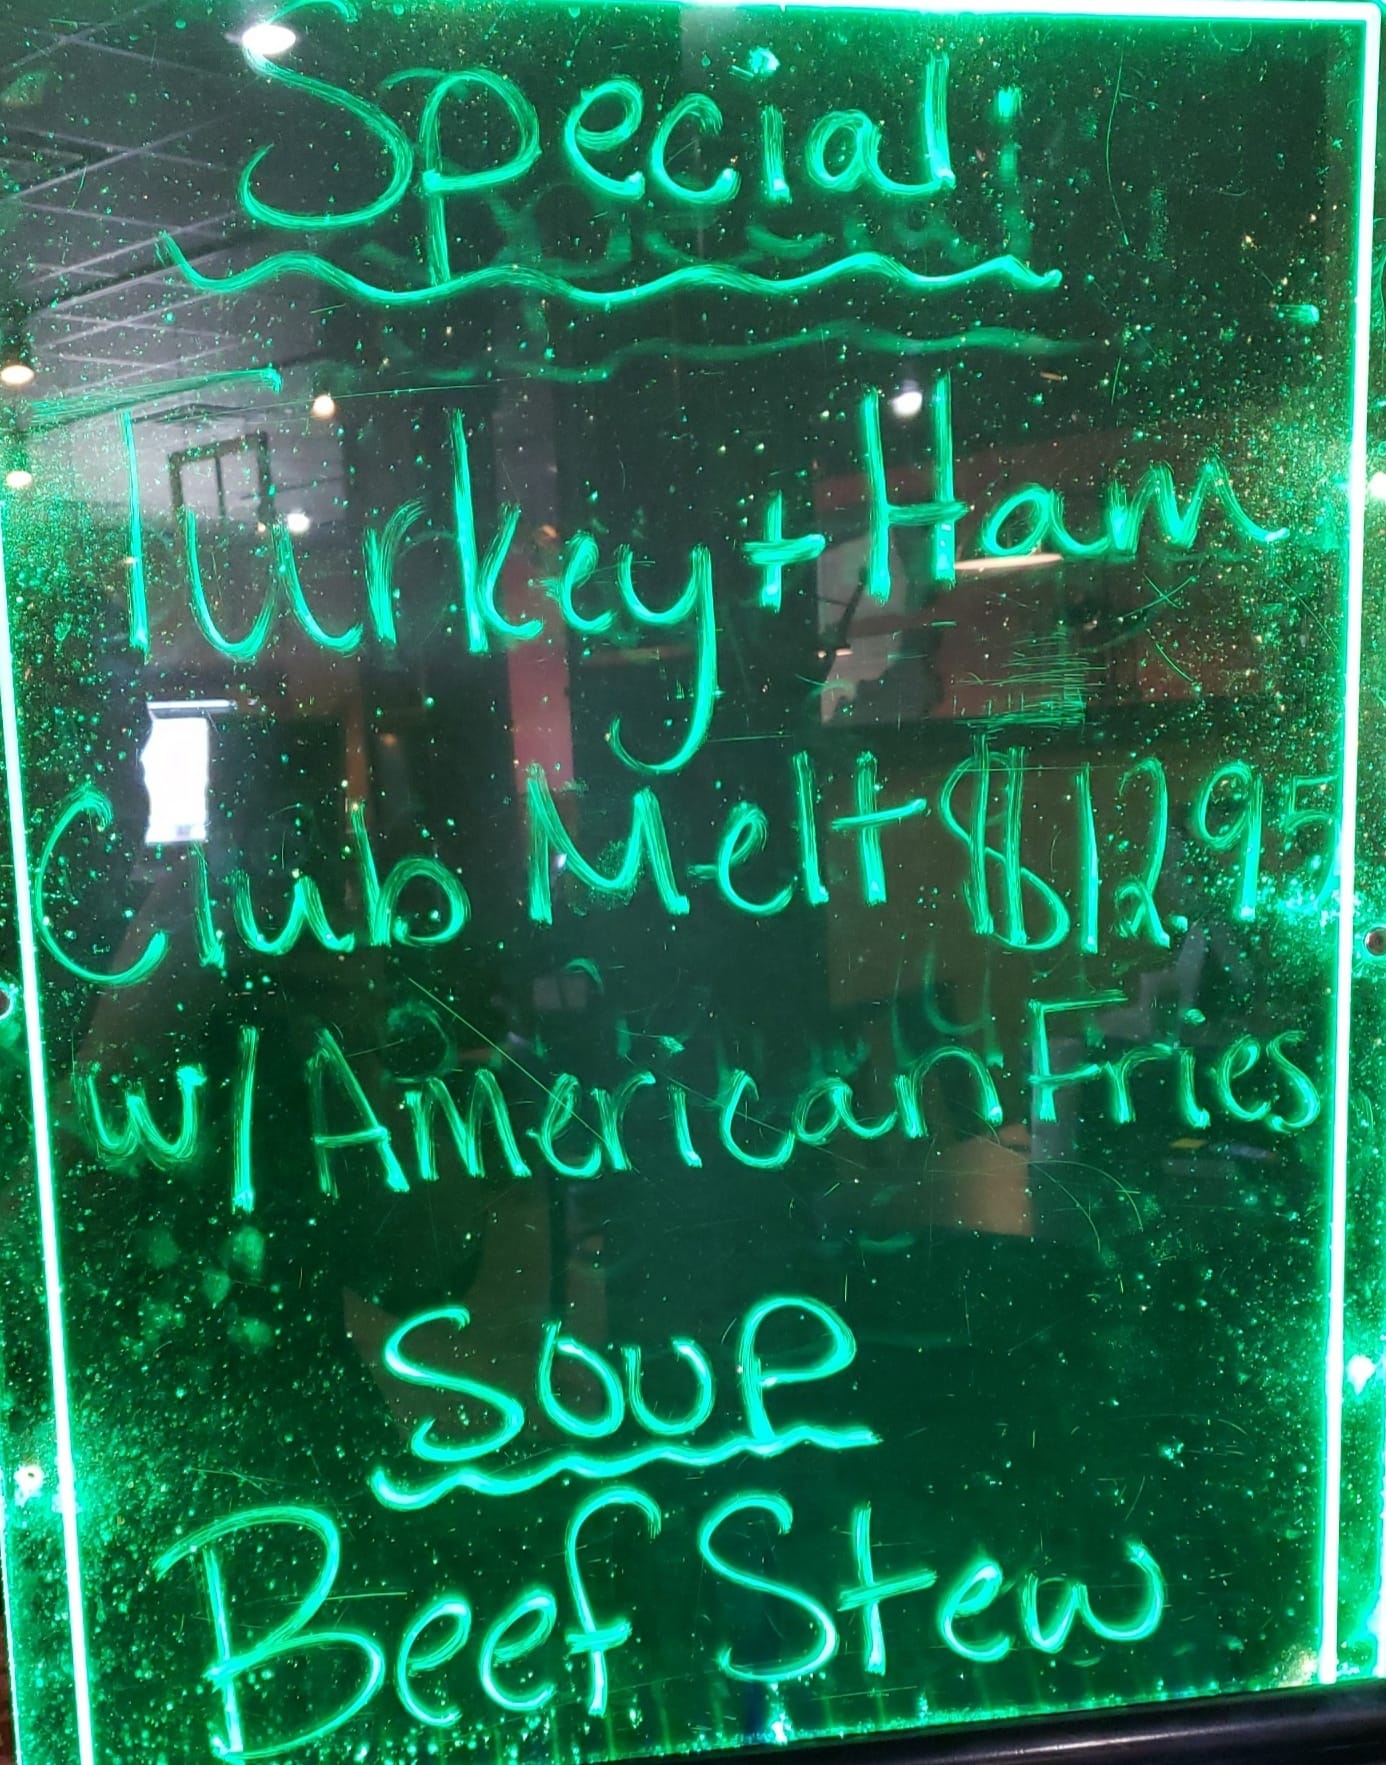 Special
Turkey + Ham
Club Melt $12.95
w/ American Fries
Soup
Beef Stew